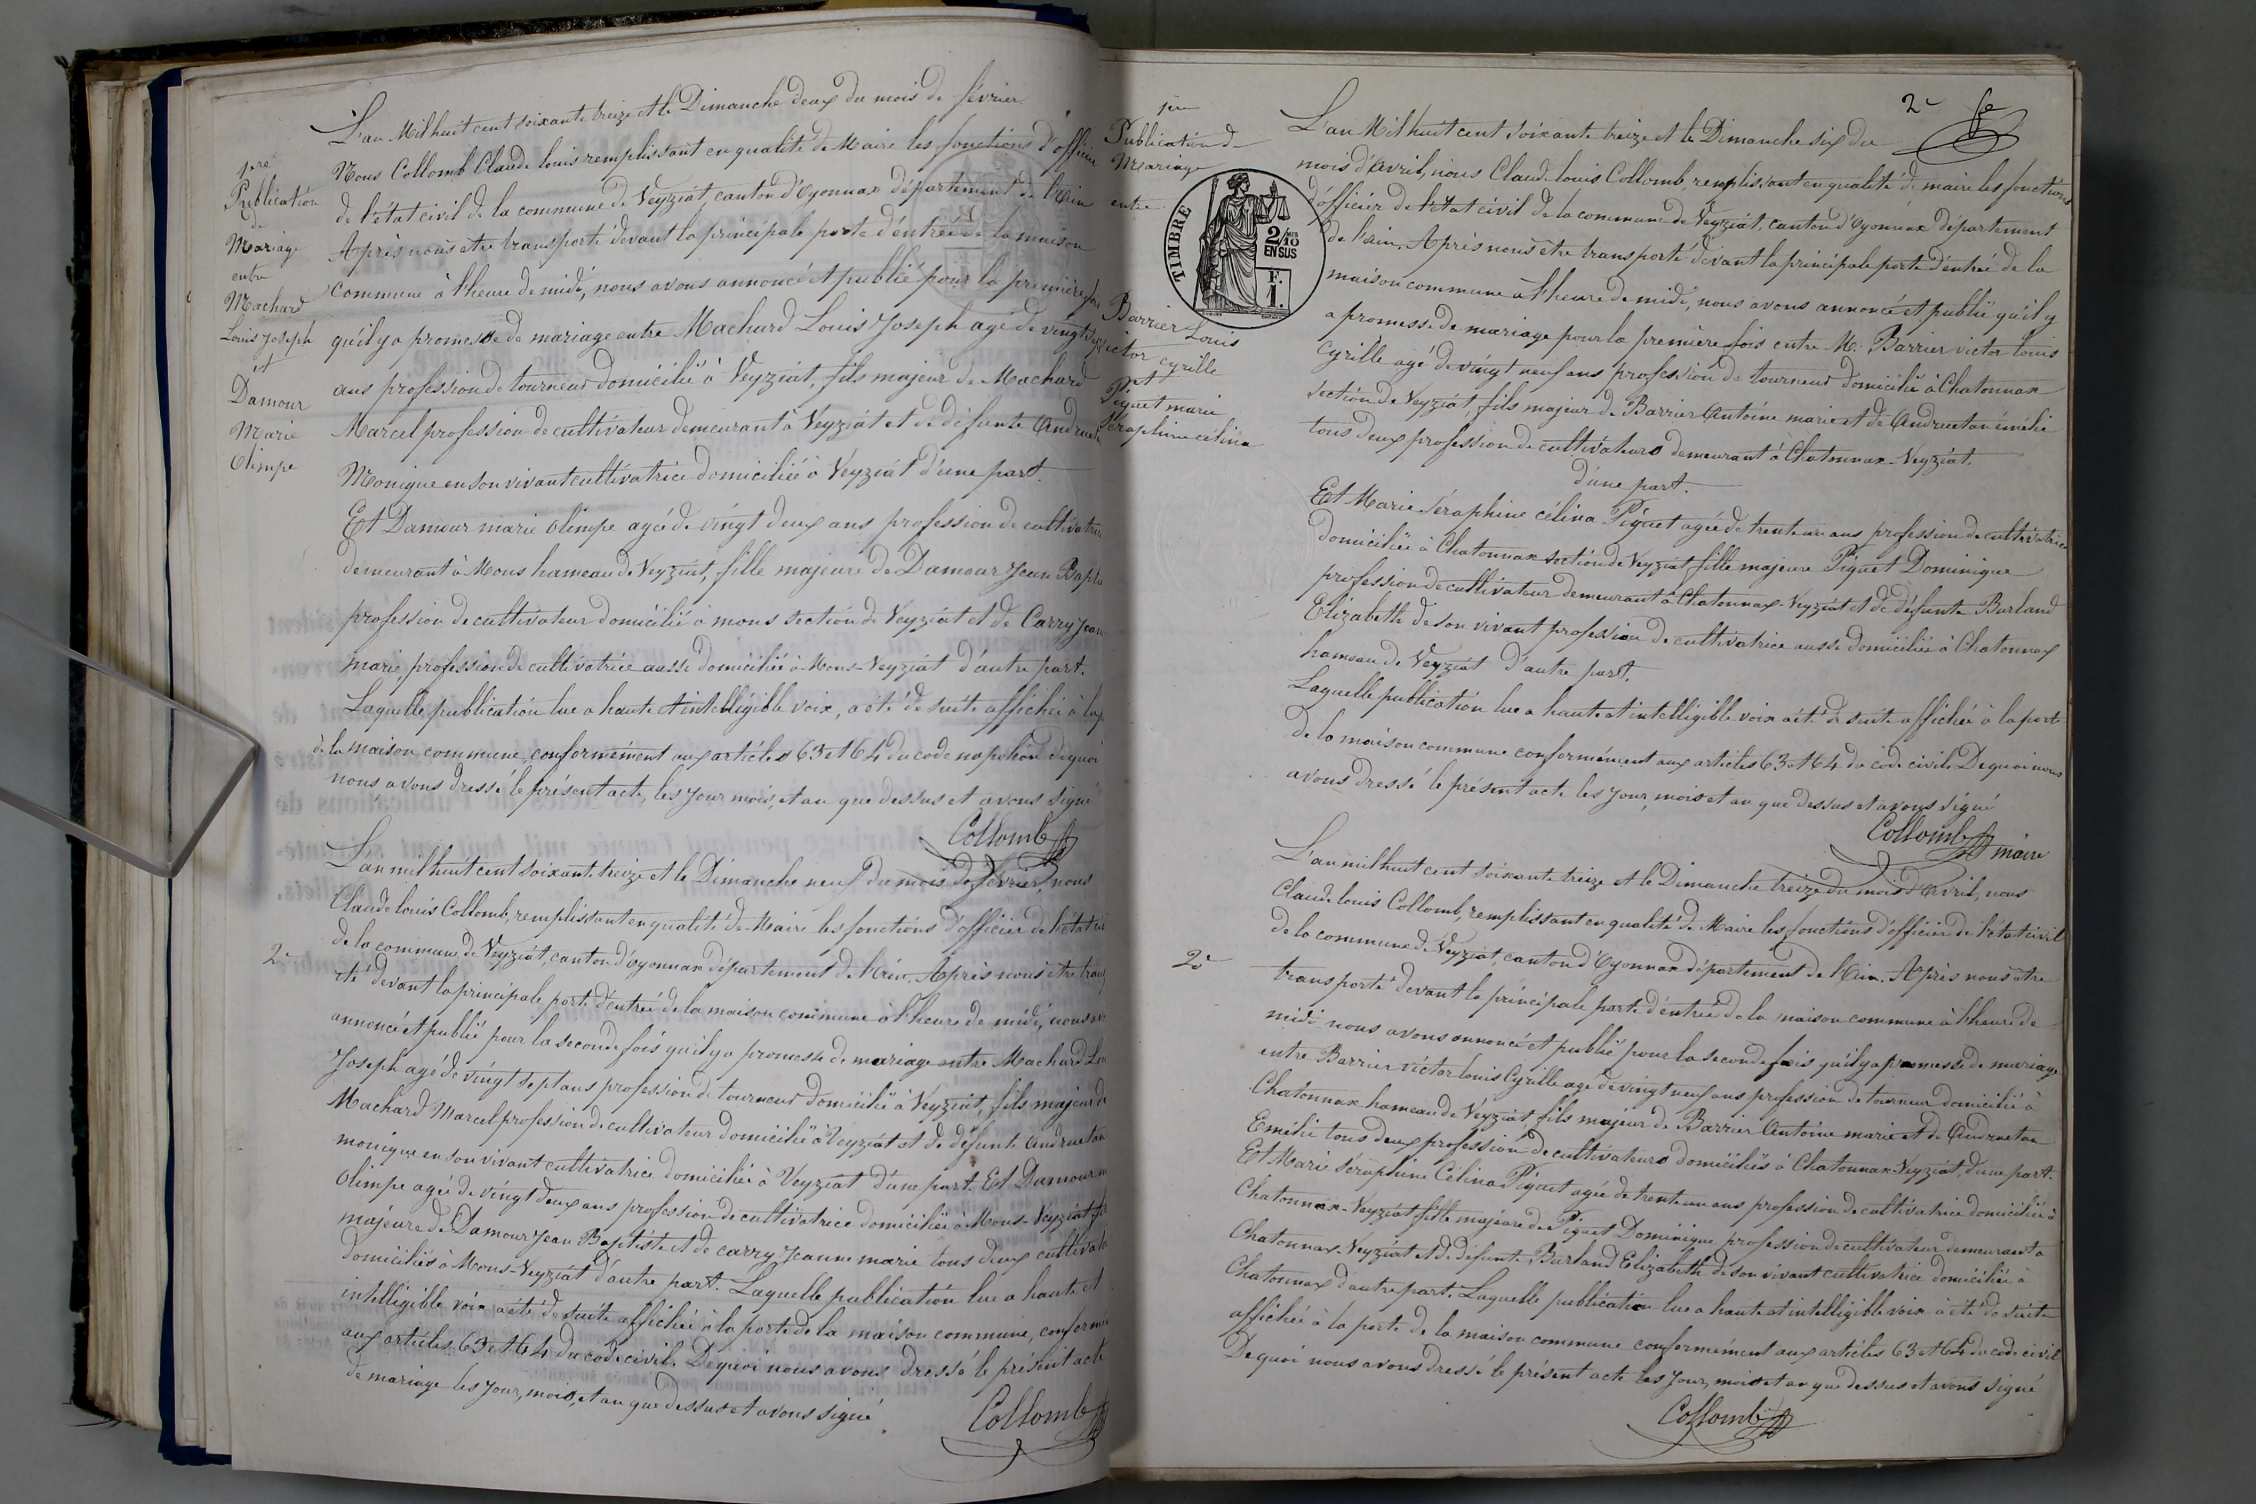 L'an Mil huit cent soixante treize et le Dimanche deux du mois de février
Nous Collomb Claude louis remplissant en qualité de Maire les fonctions d'officier
de l'état civil de la commune de Veyziat, canton d'Oyonnax département de l'Ain
Après nous etre transporté devant la principale porte d'entrée de la maison
commune à l'heure de midi, nous avons annoncé et publié pour la première fois
qu'il y a promesse de mariage entre Machard Louis Joseph agé de vingt sept
ans profession de tourneur domicilié à Veyziat, fils majeur de Machard
Marcel profession de cultivateur demeurant à Veyziat et de défunte Andruetan
Monique en son vivant cultivatrice domiciliée à Veyziat d'une part.
Et Damour marie olimpe agée de vingt deux ans profession de cultivatrice
demeurant à Mons hameau de Veyziat, fille majeure de Damour Jean Bapte
profession de cultivateur domicilié à mons section de Veyziat et de Carry Jeanne
marie, profession de cultivatrice aussi domiciliée à Mons-Veyziat d'autre part.
Laquelle publication lue a haute et intelligible voix, a été de suite affichée à la p
de la maison commune, conformément aux articles 63 et 64 du code napoléon De quoi
nous avons dressé le présent acte, les jour mois, et an que dessus et avons signé
Collomb
1ère
Publication
de
Mariage
entre
Machard
Louis Joseph
et
Damour
Marie
Olimpe
L'an mil huit cent soixante treize et le Dimanche neuf du mois de février, nous
Claude louis Collomb, remplissant en qualité de Maire les fonctions d'officier de l'état civil
de la commune de Veyziat, canton d'Oyonnax département de l'Ain. Après nous etre trans
2e
rté devant la principale porte d'entrée de la maison commune à l'heure de midi, nous av
annoncé et publié pour la seconde fois qu'il y a promesse de mariage entre Machard Lou
Joseph agé de vingt sept ans profession de tourneur domicilié à Veyziat, fils majeur de
Machard Marcel profession de cultivateur domicilié à Veyziat et de défunte Andruetan
monique en son vivant cultivatrice domiciliée à Veyziat d'une part. Et Damour m
Olimpe agée de vingt deux ans profession de cultivatrice domiciliée à Mons-Veyziat fil
majeure de Damour Jean Baptiste et de carry Jeanne marie tous deux cultivate
domiciliés à Mons-Veyziat d'autre part. Laquelle publication lue a haute et
intelligible voix a été de suite affichée à la porte de la maison commune, conforme
aux articles 63 et 64 du code civil. De quoi nous avons dressé le présent acte
de mariage les jour, mois, et an que dessus et avons signé
Collomb
2e
1ère
Publication de
Mariage
entre
Barrier Louis
victor cyrille
et
Piquet marie
séraphine célina
TIMBRE
2/10 EN SUS
F. 1.
L'an Mil huit cent soixante treize et le Dimanche six du
mois d'avril, nous Claude louis Collomb, remplissant en qualité de maire les fonctions
d'officier de l'état civil de la commune de Veyziat, canton d'Oyonnax département
de l'ain. Après nous être transporté devant la principale porte d'entrée de la
maison commune à l'heure de midi, nous avons annoncé et publié qu'il y
a promesse de mariage pour la première fois entre M. Barrier victor louis
Cyrille agé de vingt neuf ans profession de tourneur domicilié à Chatonnax
section de Veyziat, fils majeur de Barrier Antoine marie et de Andruetan émélie
tous deux profession de cultivateurs demeurant à Chatonnax-Veyziat.
d'une part.
Et Marie Séraphine célina Piquet agée de trente un ans profession de cultivatrice
domiciliée à Chatonnax section de Veyziat, fille majeure Piquet Dominique
profession de cultivateur demeurant à Chatonnax-Veyziat et de défunte Burland
Elizabeth de son vivant profession de cultivatrice aussi domiciliée à Chatonnax
hameau de Veyziat d'autre part.
Laquelle publication lue a haute et intelligible voix a été de suite affichée à la porte
de la maison commune conformément aux articles 63 et 64 du code civil. De quoi nous
avons dressé le présent acte les jour, mois et an que dessus et avons signé
Collomb maire
L'an mil huit cent soixante treize et le Dimanche treize du mois d'Avril, nous
Claude louis Collomb, remplissant en qualité de Maire les fonctions d'officier de l'état civil
de la commune de Veyziat, canton d'Oyonnax département de l'Ain. Après nous être
2e
transporté devant la principale porte d'entrée de la maison commune à l'heure de
midi nous avons annoncé et publié pour la seconde fois qu'il y a promesse de mariage
entre Barrier victor louis Cyrille age de vingt neuf ans profession de tourneur domicilié à
Chatonnax hameau de Veyziat fils majeur de Barrier Antoine marie et de Andruetan
Emélie tous deux profession de cultivateurs domiciliés à Chatonnax Veyziat, d'une part.
Et Marie Séraphine Célina Piquet agée de trente un ans profession de cultivatrice domiciliée à
Chatonnax-Veyziat fille majeure de Piquet Dominique profession de cultivateur demeurant a
Chatonnax-Veyziat et de défunte Burland Elizabeth de son vivant cultivatrice domiciliée à
Chatonnax d'autre part. Laquelle publication lue a haute et intelligible voix a été de suite
affichée à la porte de la maison commune conformément aux articles 63 et 64 du code civil
De quoi nous avons dressé le présent acte les jour, mois et an que dessus et avons signé
Collomb